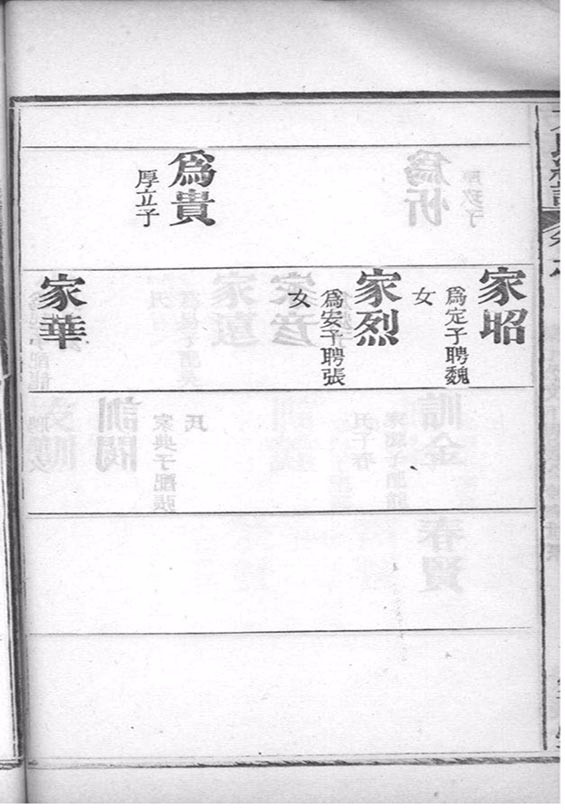 爲貴
厚立子
家昭
爲定子聘魏
女
家烈
爲安子聘張
女
家華